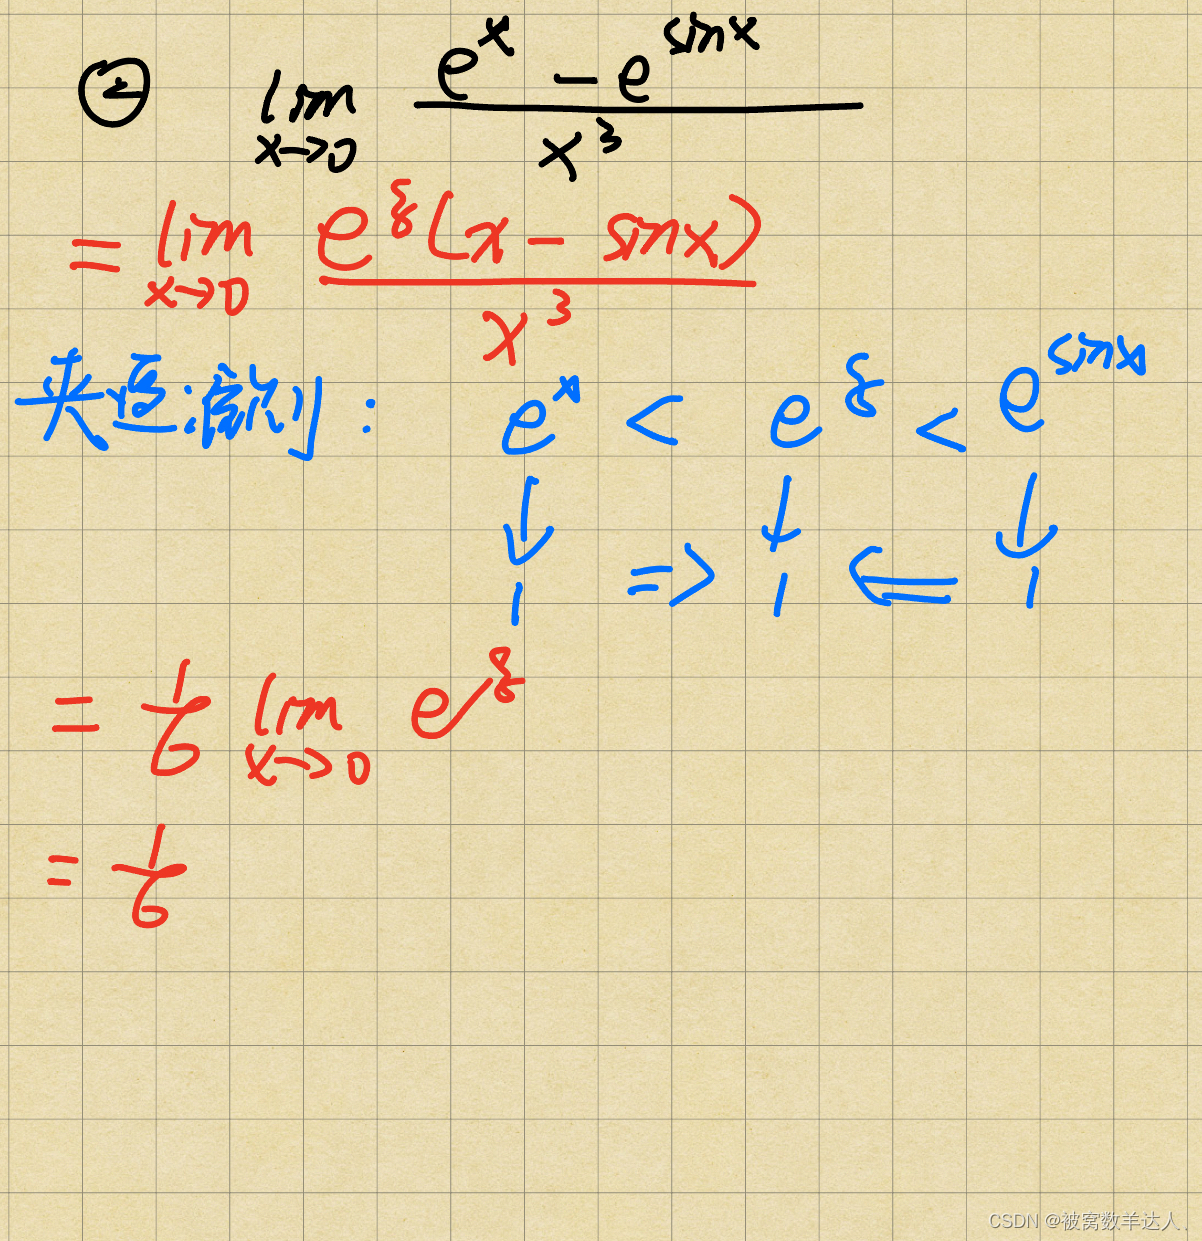 ② lim x→0 (e^x - e^sinx) / x^3
= lim x→0 e^ξ(x - sinx) / x^3
夹逼准则: e^x < e^ξ < e^sinx
↓ ↓ ↓
1 ⇒ 1 ⇐ 1
= 1/6 lim x→0 e^ξ
= 1/6
CSDN @被窝数羊达人.